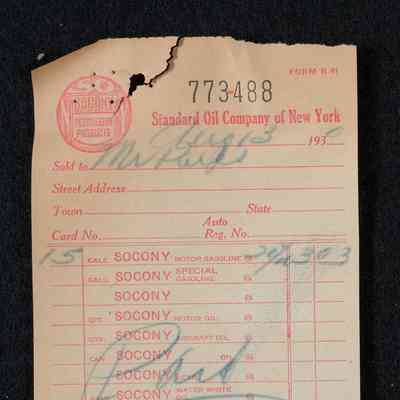 FORM R-91
SOCONY
PETROLEUM
PRODUCTS
773488
Standard Oil Company of New York
Aug 13 1930
Sold to Mr
Street Address
Town State
Card No. Auto Reg. No.
15 GALS. SOCONY MOTOR GASOLINE @ 3 03
GALS. SOCONY SPECIAL GASOLINE @
SOCONY @
QTS. SOCONY MOTOR OIL @
QTS. SOCONY OIL @
CAN SOCONY OIL @
SOCONY @
SOCONY WATER WHITE
Paid